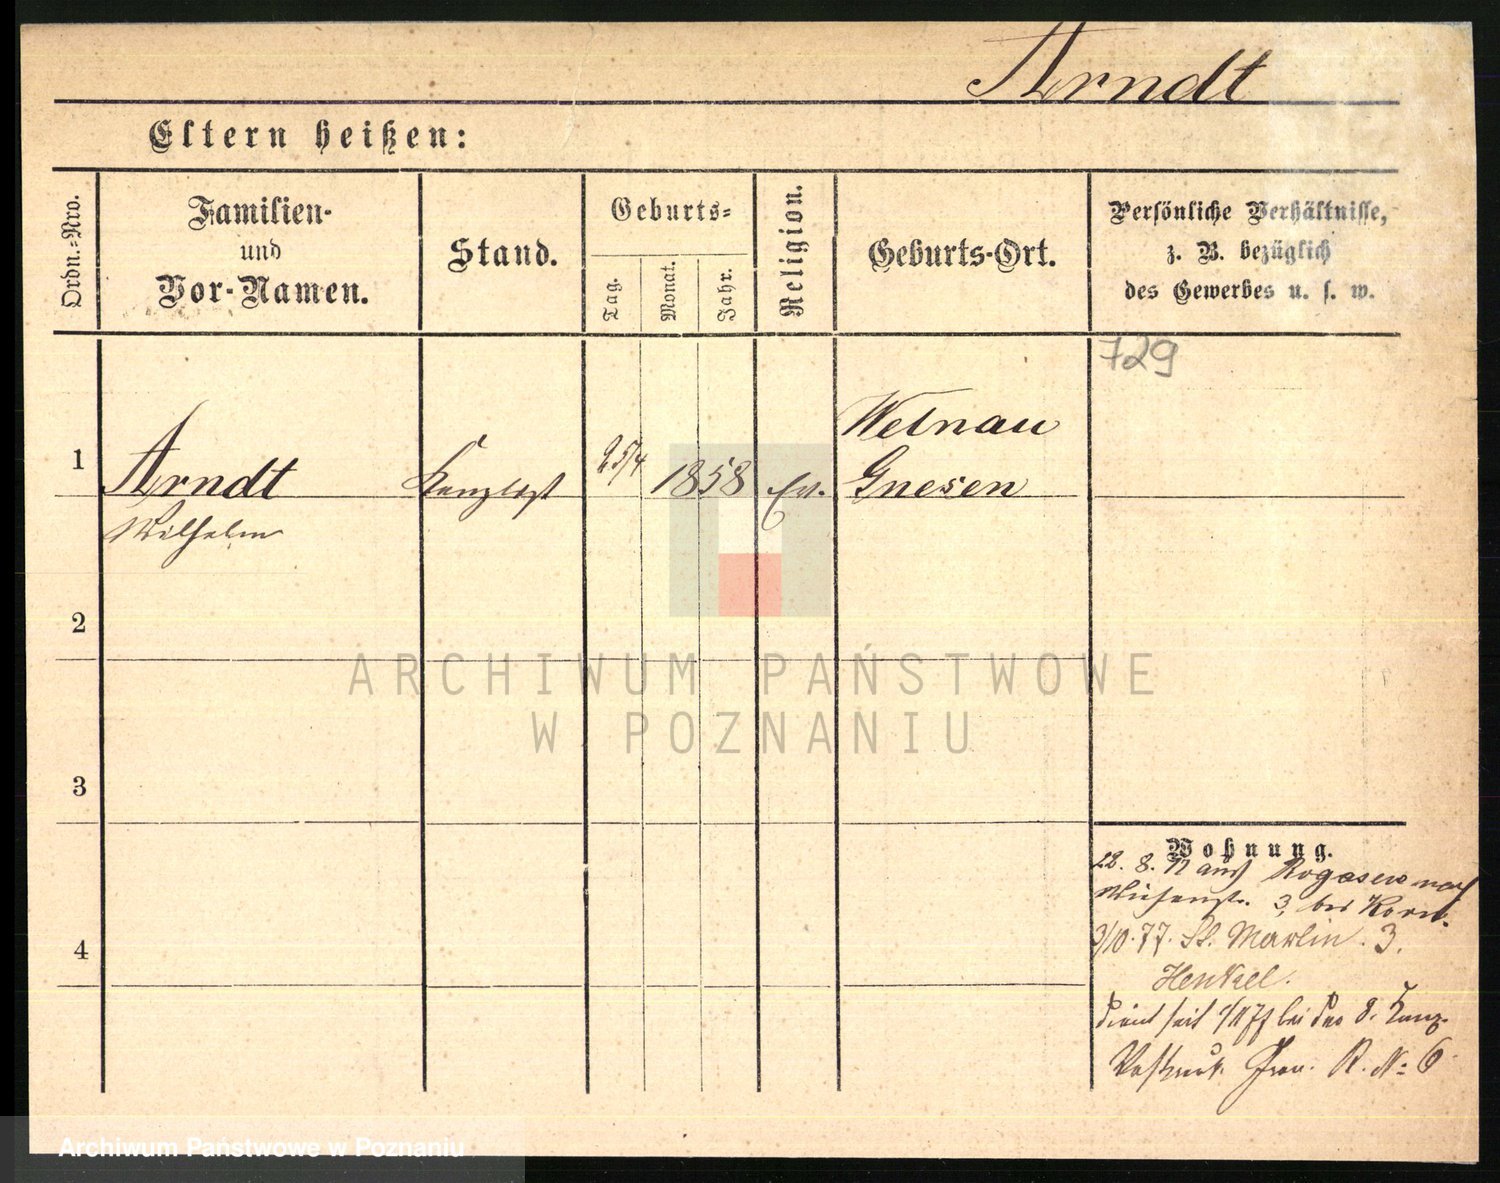 Arndt
Eltern heißen:
Ordn.-Nro.
Familien-
und
Vor-Namen.
Stand.
Geburts-
Tag.
Monat.
Jahr.
Religion.
Geburts-Ort.
Persönliche Verhältnisse,
z. B. bezüglich
des Gewerbes u. s. w.
729
1
Arndt
Wilhelm
Kanzlist
25/4
1858
Ev.
Welnau
Gnesen
2
3
4
Wohnung.
28. 8. 77 aus Rogasen nach
3, bei
3/10. 77. St. Martin. 3.
Henkel.
dient seit bei der 8. Komp.
Gren. R. No 6
ARCHIWUM PAŃSTWOWE
W POZNANIU
Archiwum Państwowe w Poznaniu